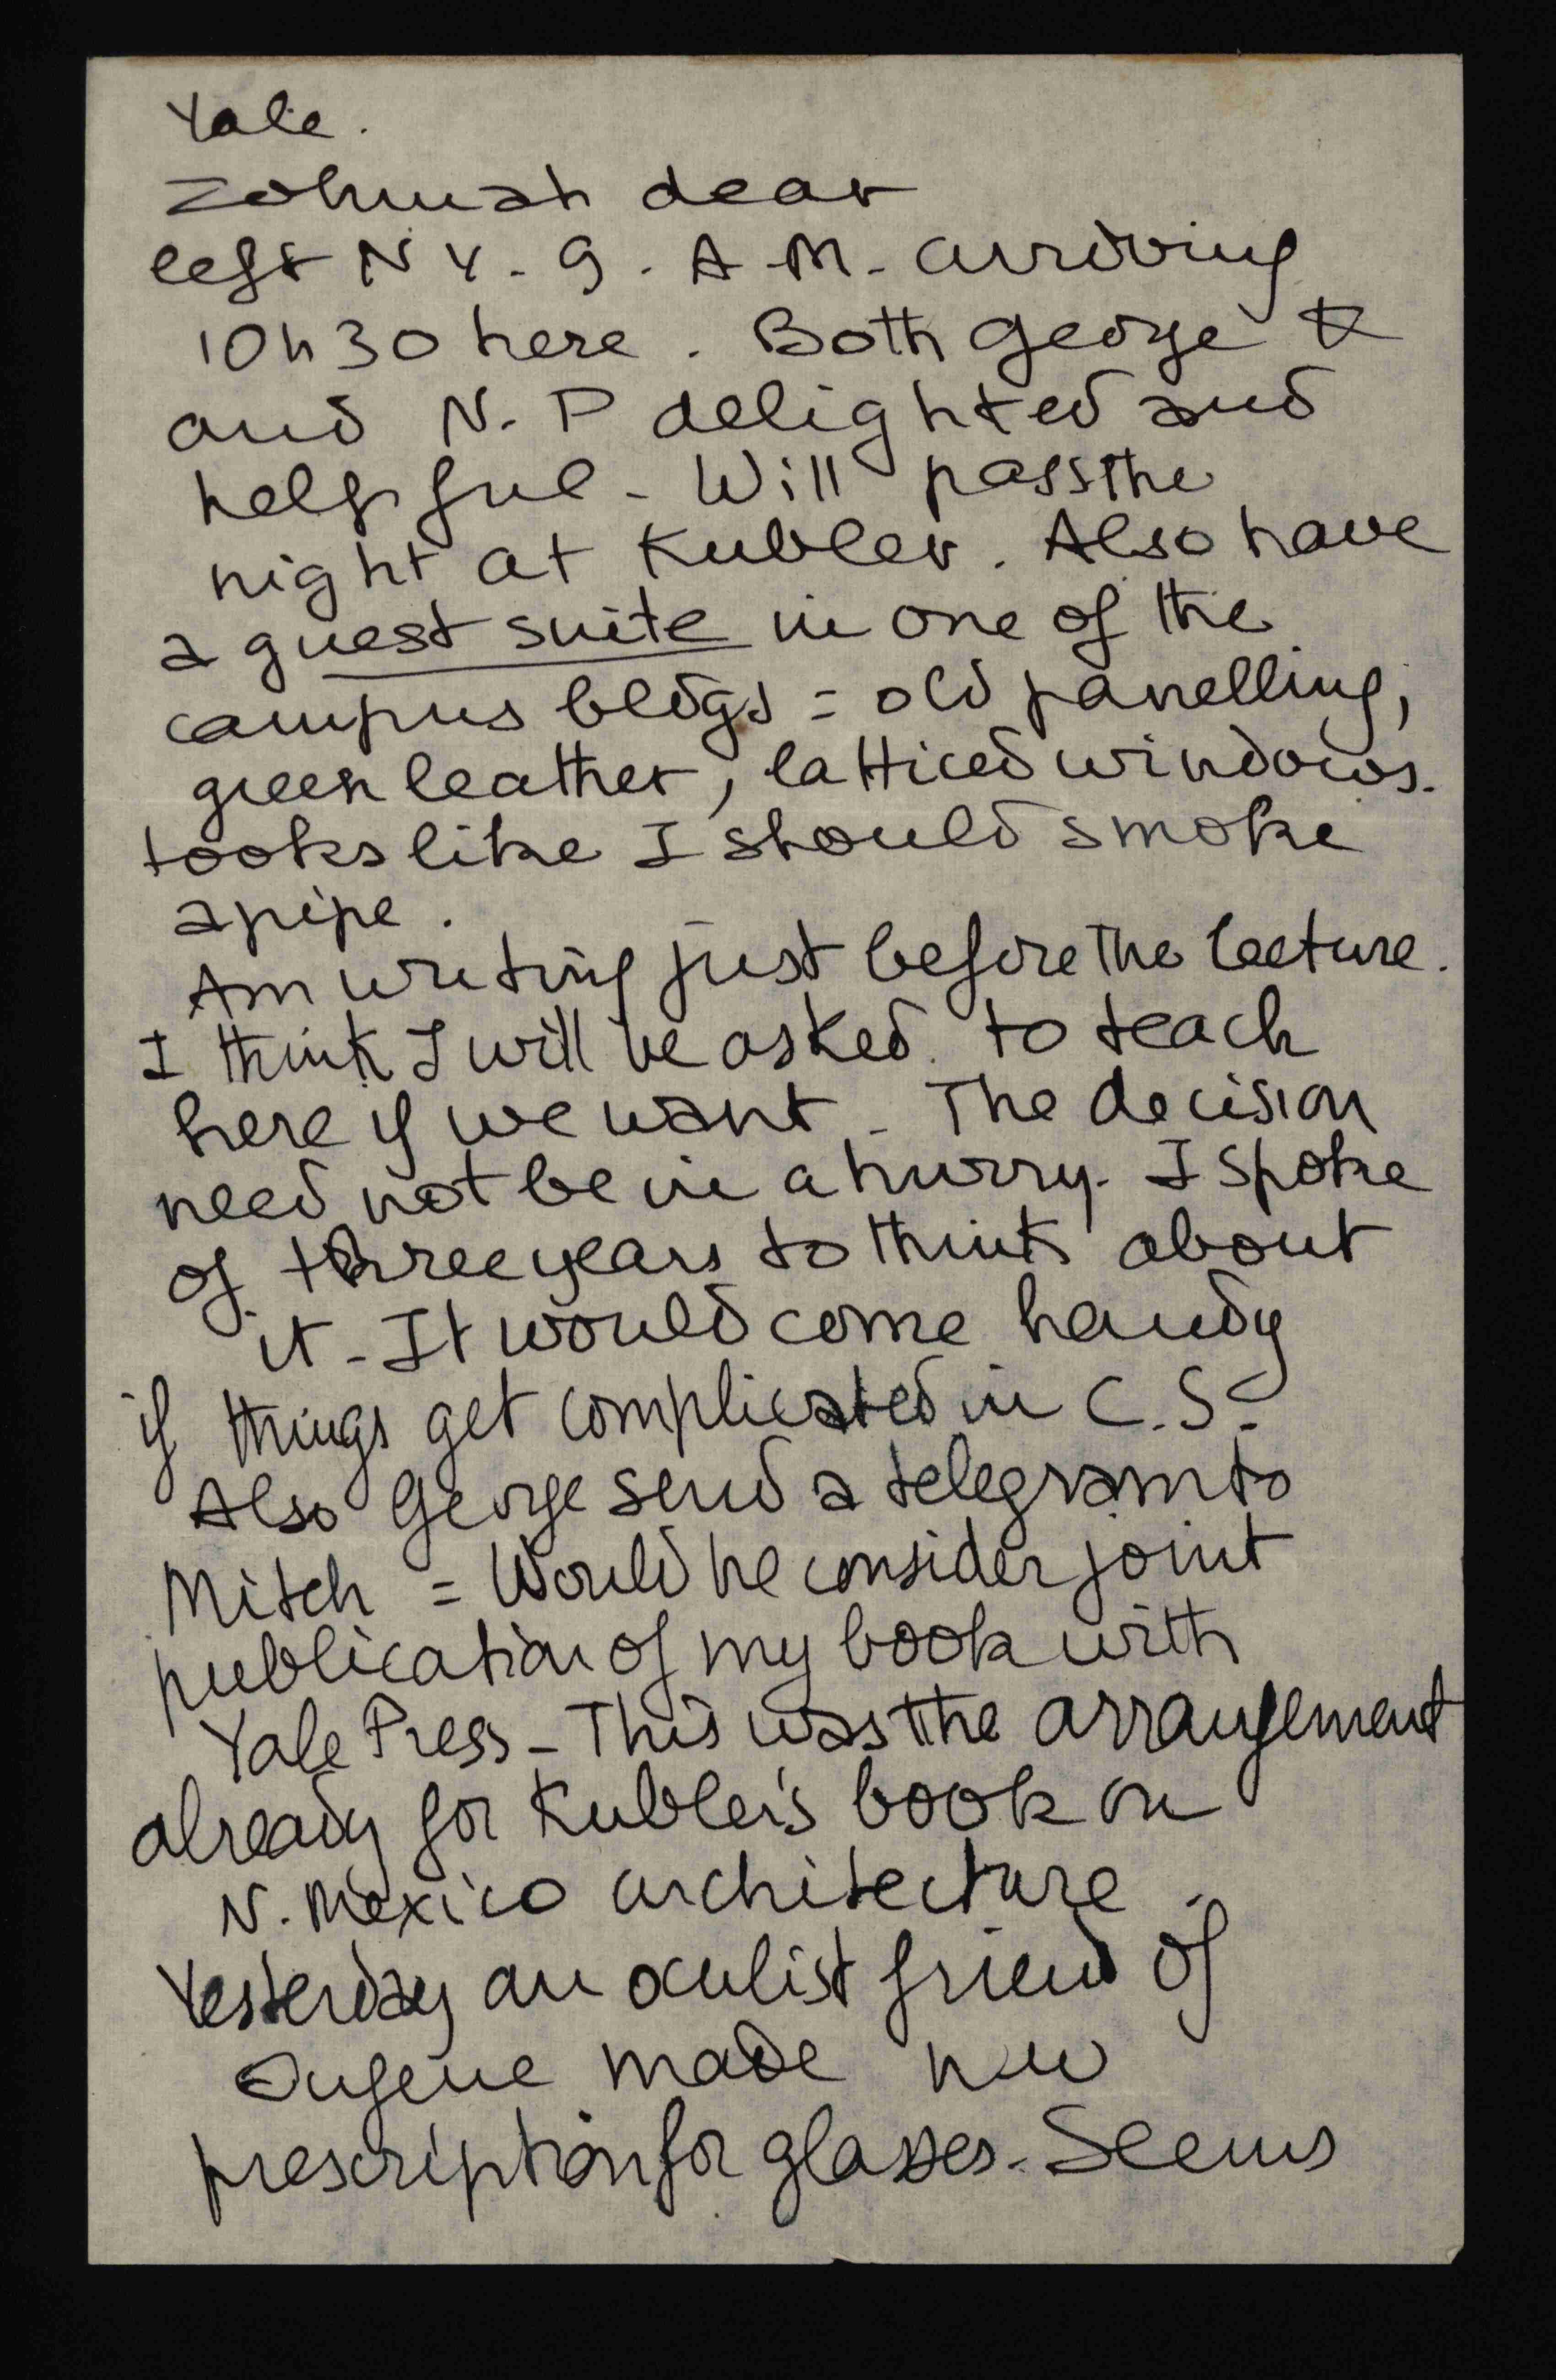 Yale.
Zohmah dear
left N Y - 9 . A - M - arriving
10h30 here . Both George &
and N. P delighted and
helpful - Will pass the
night at Kubler . Also have
a guest suite in one of the
campus bldgs = old panelling,
green leather, latticed windows.
looks like I should smoke
a pipe .
Am writing just before the lecture.
I think I will be asked to teach
here if we want - The decision
need not be in a hurry - I spoke
of three years to think about
it - It would come handy
if things get complicated in C. S.
Also George send a telegram to
Mitch = Would he consider joint
publication of my book with
Yale Press - This was the arrangement
already for Kubler's book on
N. Mexico architecture .
Yesterday an oculist friend of
Eugene made new
prescription for glasses - Seems